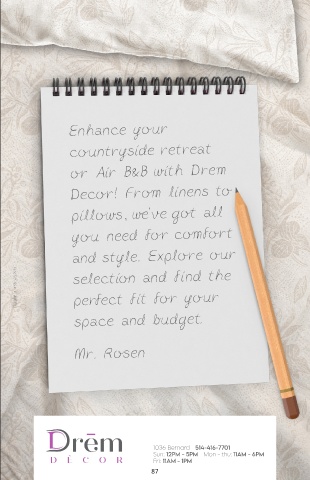 Enhance your
countryside retreat
or Air B&B with Drem
Decor! From linens to
pillows, we've got all
you need for comfort
and style. Explore our
selection and find the
perfect fit for your
space and budget.
Mr. Rosen
Drēm
DÉCOR
1036 Bernard 514-416-7701
Sun: 12PM - 5PM Mon - thu: 11AM - 6PM
Fri: 11AM - 1PM
87